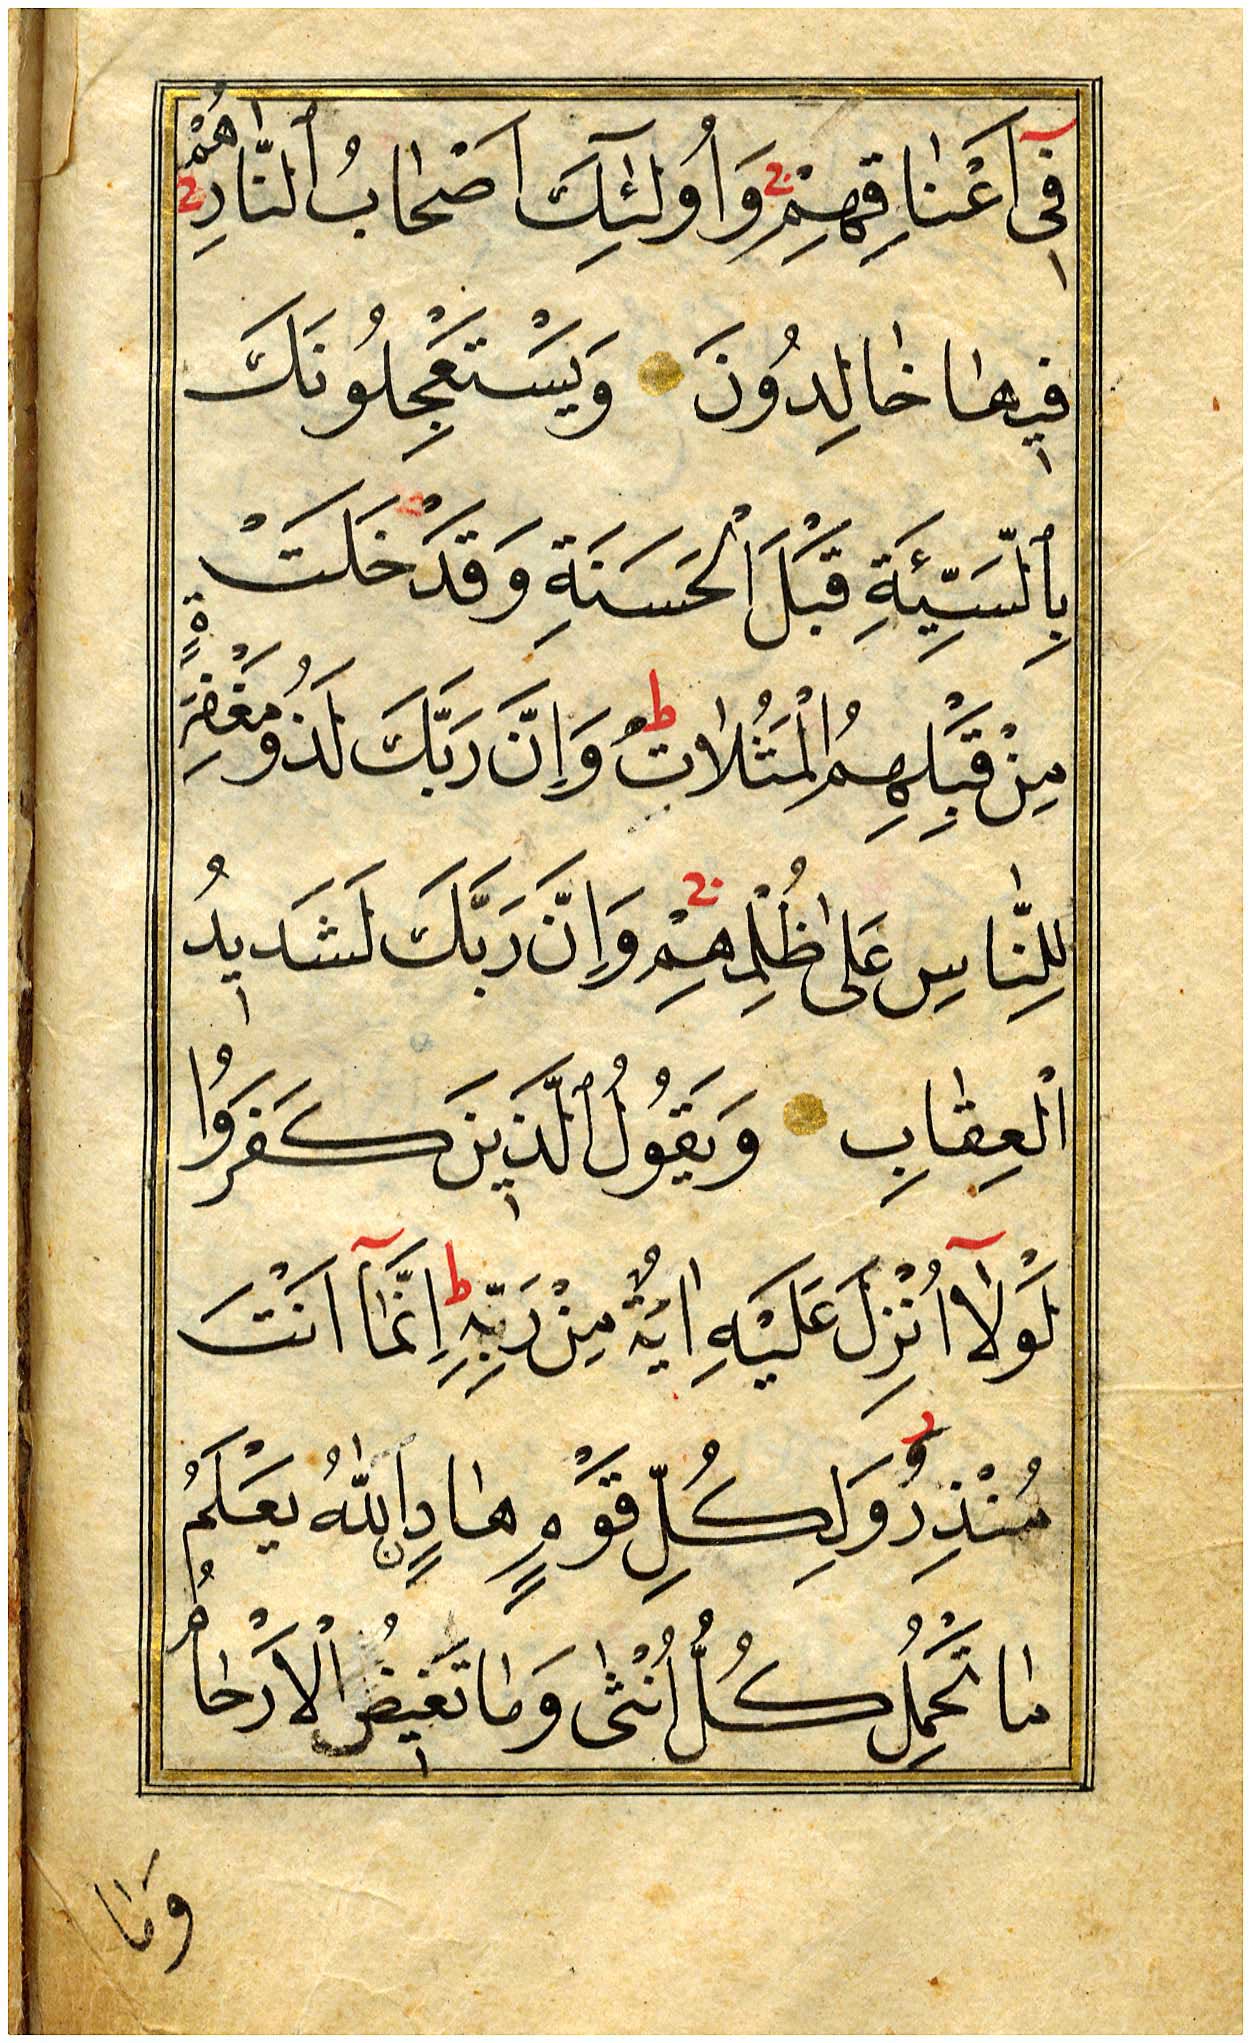 فِٓى اَعْنَاقِهِمْ وَاُولٰٓئِكَ اَصْحَابُ النَّارِ هُمْ
فِيهَا خَالِدُونَ وَيَسْتَعْجِلُونَكَ
بِٱلسَّيِّئَةِ قَبْلَ الْحَسَنَةِ وَقَدْ خَلَتْ
مِنْ قَبْلِهِمُ الْمَثُلَاتُ ط وَاِنَّ رَبَّكَ لَذُو مَغْفِرَةٍ
لِلنَّاسِ عَلٰى ظُلْمِهِمْ وَاِنَّ رَبَّكَ لَشَدِيدُ
الْعِقَابِ وَيَقُولُ ٱلَّذِينَ كَفَرُوا
لَوْلَآ اُنْزِلَ عَلَيْهِ اٰيَةٌ مِنْ رَبِّهِ ط اِنَّمَآ اَنْتَ
مُنْذِرٌ وَلِكُلِّ قَوْمٍ هَادٍ اَللّٰهُ يَعْلَمُ
مَا تَحْمِلُ كُلُّ اُنْثٰى وَمَا تَغِيضُ الْاَرْحَامُ
وَمَا